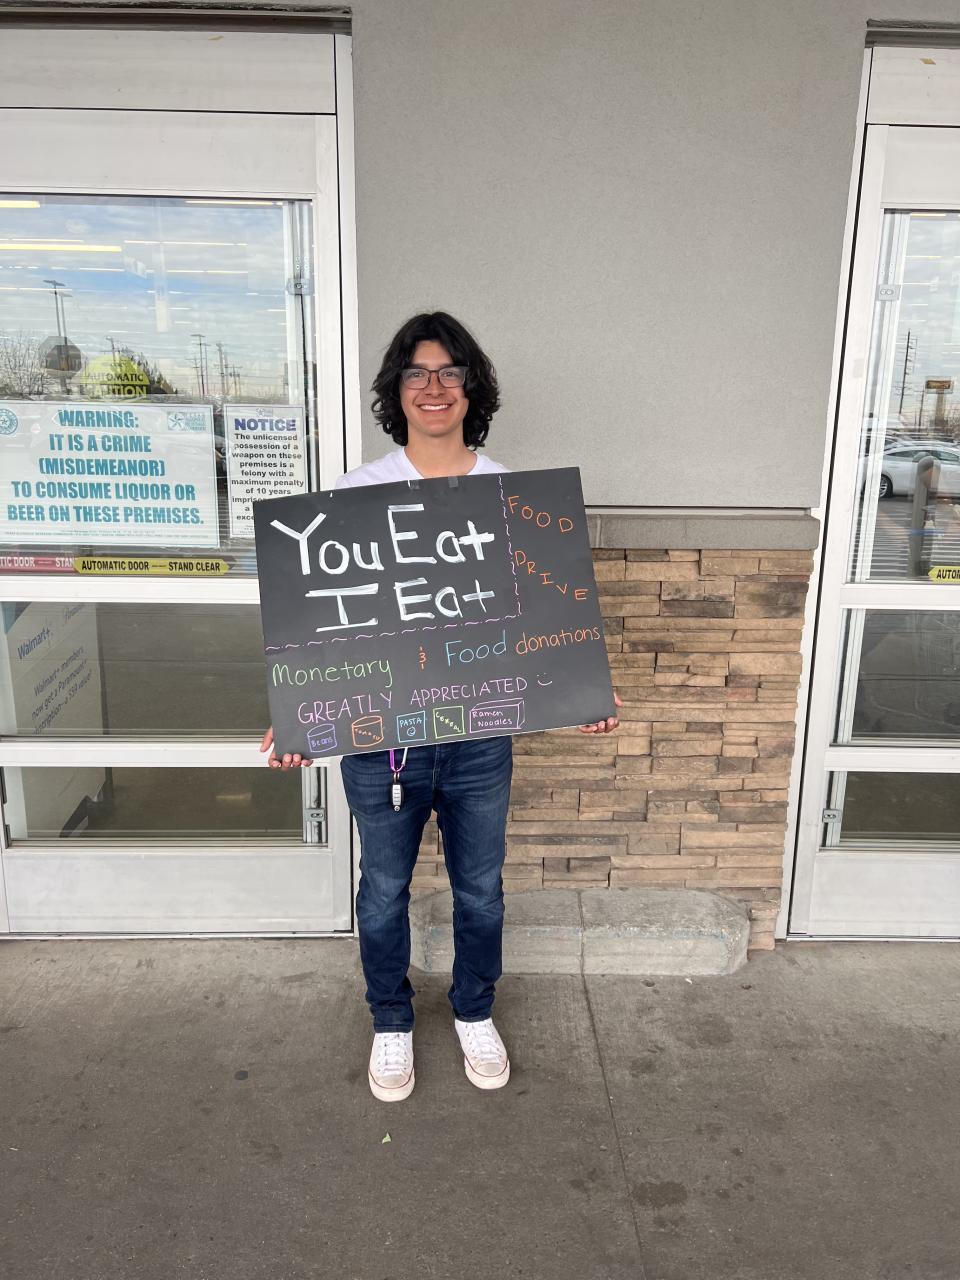 AUTOMATIC
CAUTION
WARNING:
IT IS A CRIME
(MISDEMEANOR)
TO CONSUME LIQUOR OR
BEER ON THESE PREMISES.
NOTICE
The unlicensed
possession of a
weapon on these
premises is a
felony with a
maximum penalty
of 10 years
AUTOMATIC DOOR STAND CLEAR
Walmart+
Walmart+ members
now get a Paramount+
You Eat
I Eat
FOOD
DRIVE
Monetary & Food donations
GREATLY APPRECIATED
Beans
Tomato
PASTA
CEREAL
Ramen
Noodles